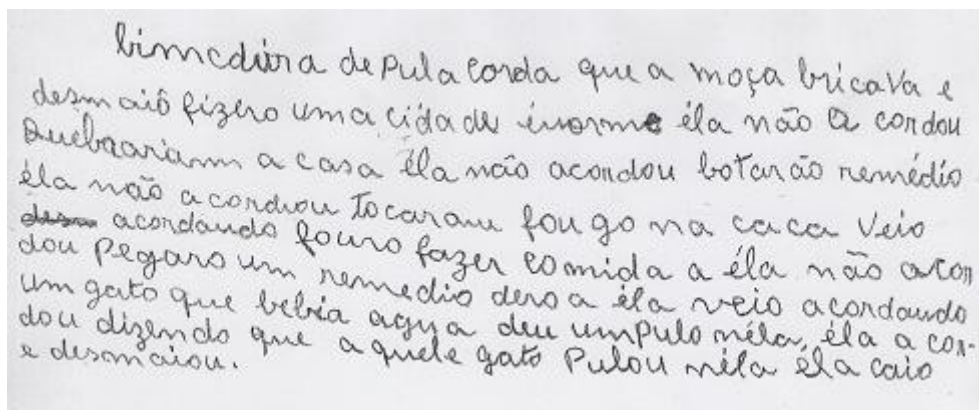 bimcdúra de Pula corda que a moça bricava e
desmaiô fizero uma cidade énorme éla não a cordou
Quebraariam a casa éla não acordou botarão remédio
éla não acordiou Tocaram fougo na caca Veio
acordando fouro fazer comida a éla não acor
dou Pegaro um remedio dero a éla veio acordando
um gato que bebia agua deu umpulo néla, éla a cor-
dou dizendo que aquele gato Pulou néla éla caio
e desmaiou.